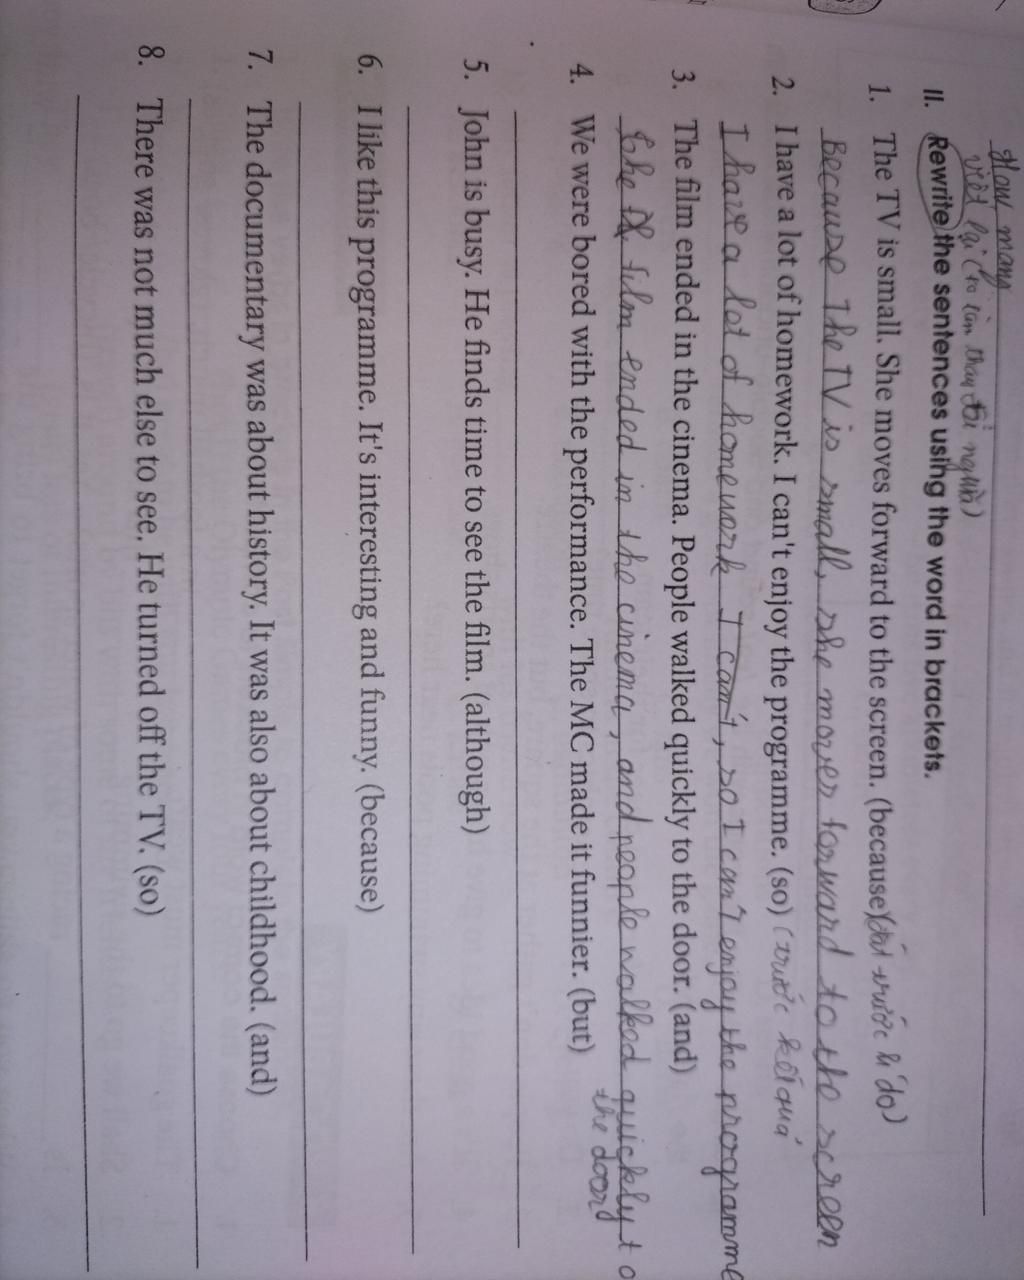 How many
viết lại (to làm thay đổi nghĩa)
II. Rewrite the sentences using the word in brackets.
1. The TV is small. She moves forward to the screen. (because) (đặt trước lí do)
Because The TV is small, she moves forward to the screen
2. I have a lot of homework. I can't enjoy the programme. (so) (trước kết quả
I have a lot of homework I can't, so I can't enjoy the programme
3. The film ended in the cinema. People walked quickly to the door. (and)
the film ended in the cinema, and people walked quickly to
the door
4. We were bored with the performance. The MC made it funnier. (but)
5. John is busy. He finds time to see the film. (although)
6. I like this programme. It's interesting and funny. (because)
7. The documentary was about history. It was also about childhood. (and)
8. There was not much else to see. He turned off the TV. (so)